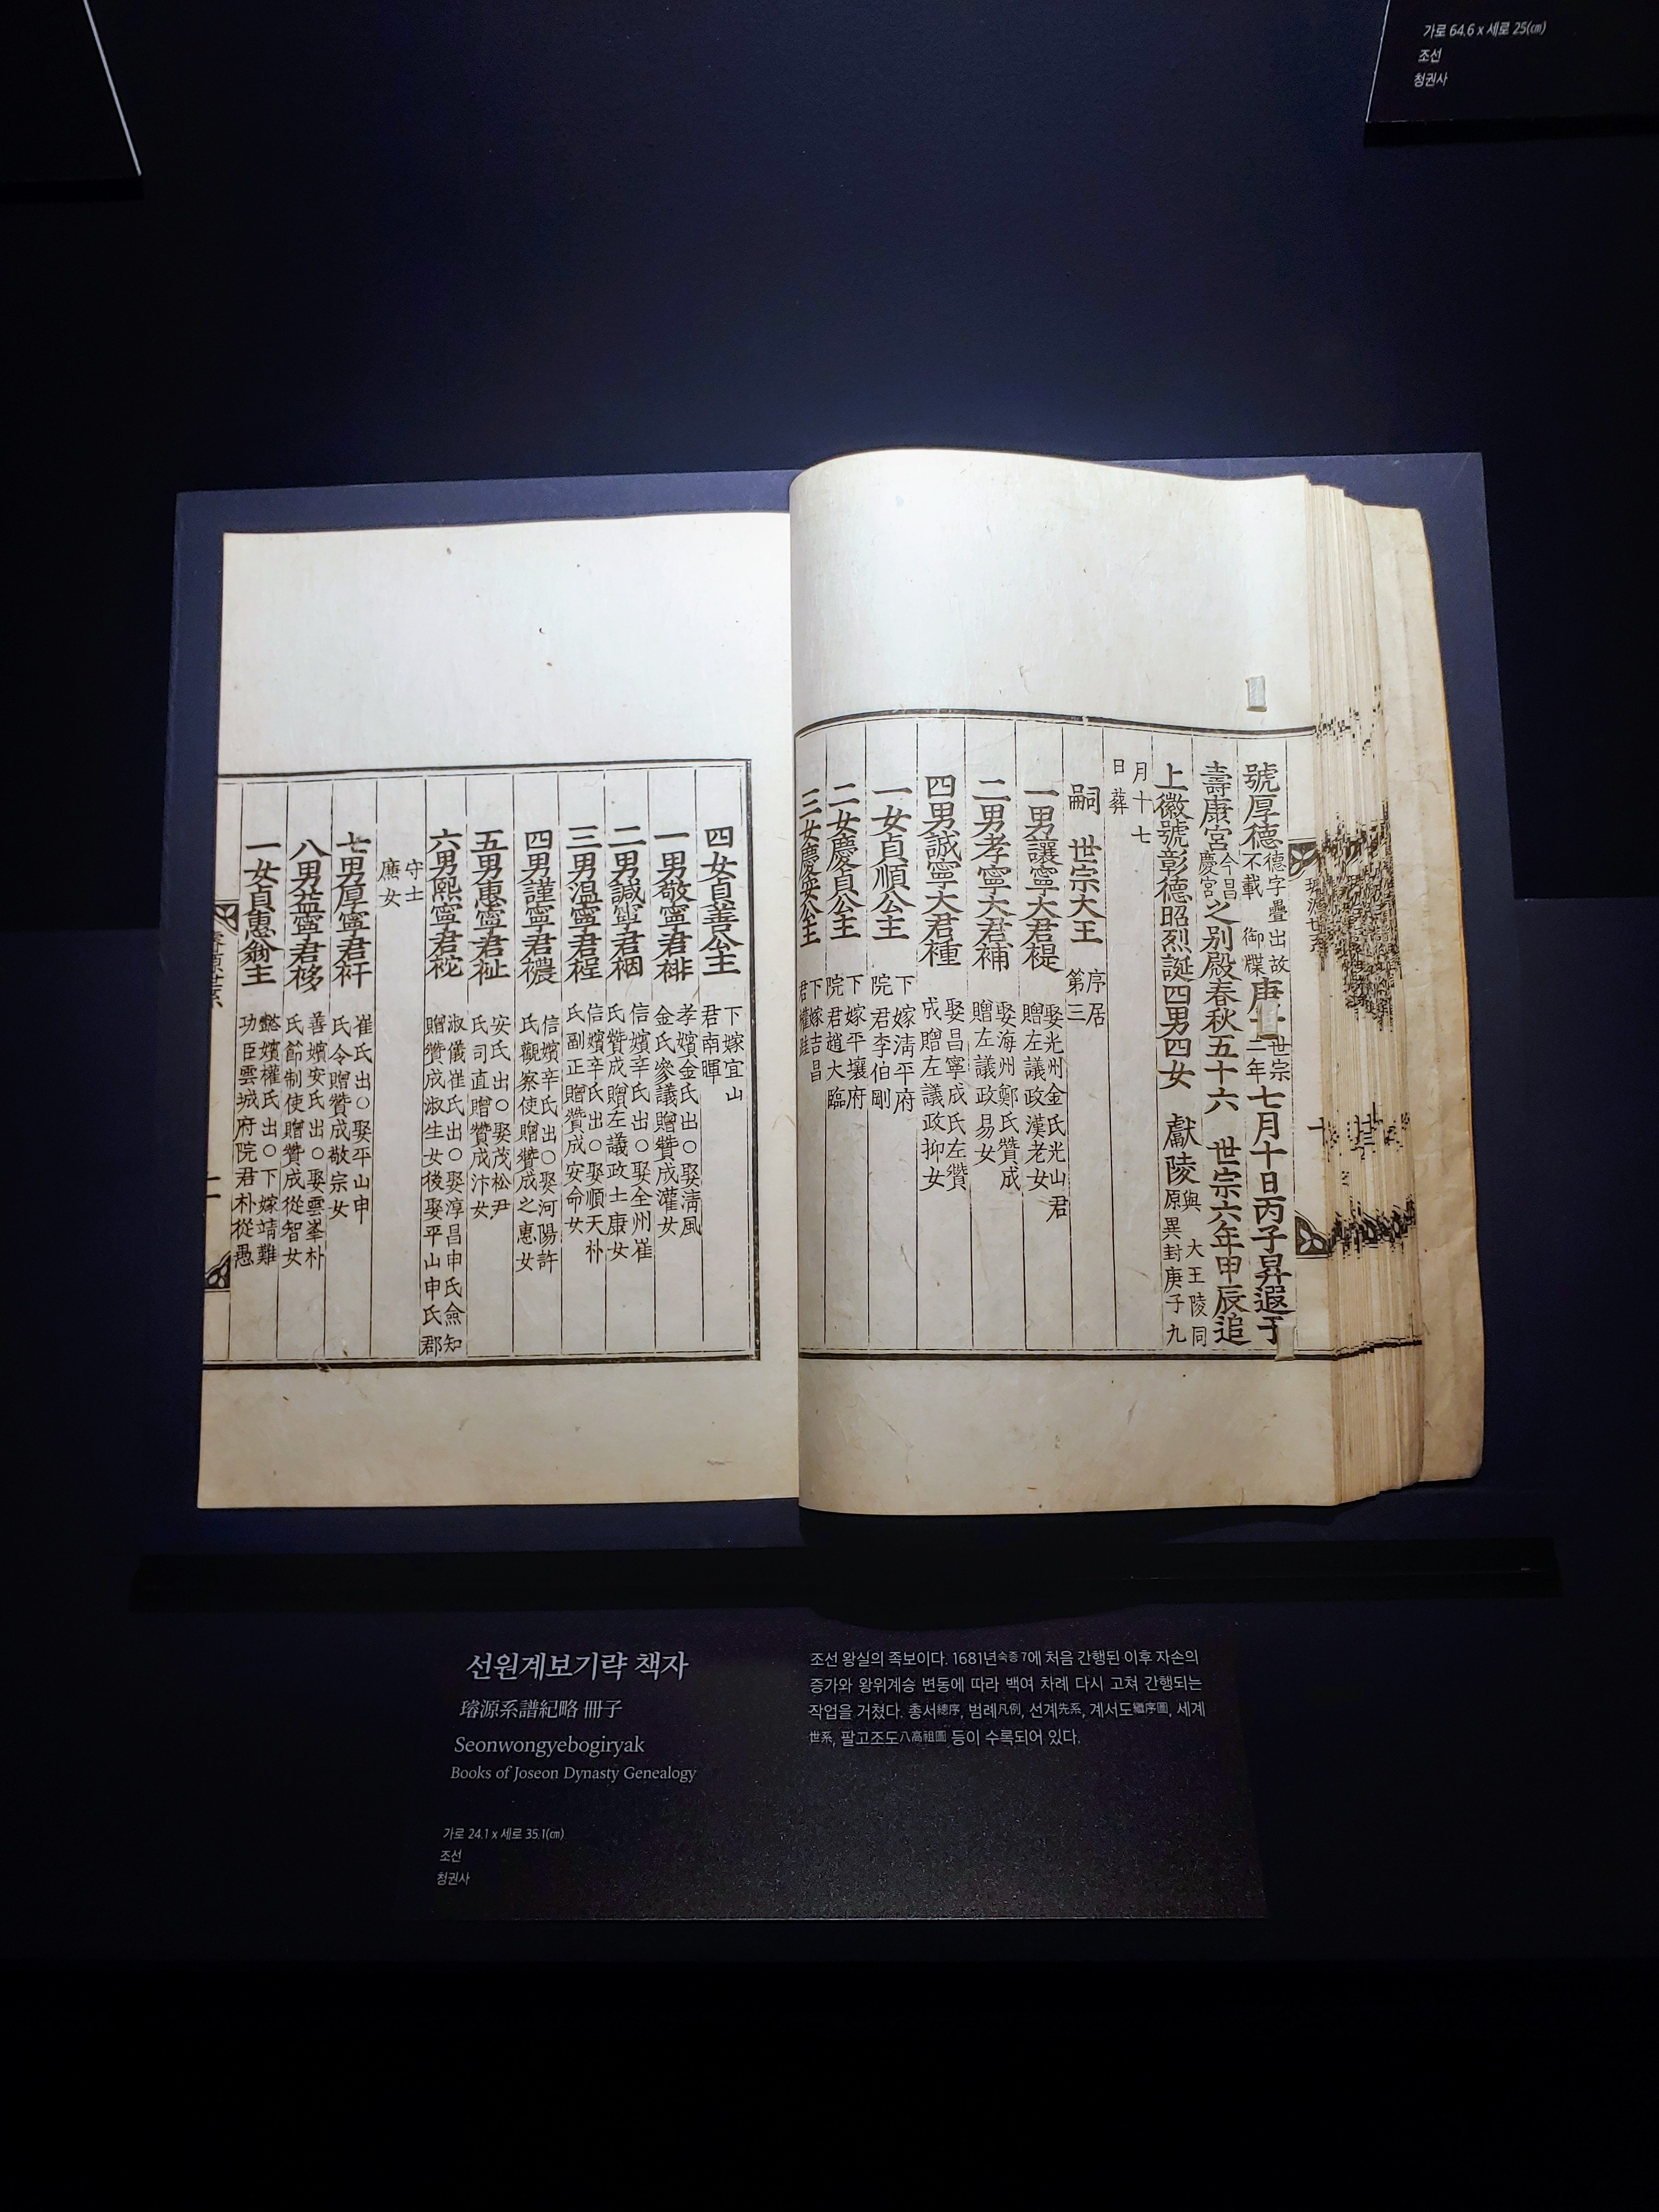 가로 64.6 x 세로 25(㎝)
조선
청권사
號厚德德字疊出故不載 御牒庚世宗二年七月十日丙子昇遐于
壽康宮今昌慶宮之別殿春秋五十六 世宗六年甲辰追
上徽號彰德昭烈誕四男四女 獻陵與 大王陵同原異封庚子九
月十七日葬
嗣 世宗大王序居第三
一男讓寧大君禔娶光州金氏光山君贈左議政漢老女
二男孝寧大君補娶海州鄭氏贊成贈左議政易女
四男誠寧大君種娶昌寧成氏左贊成贈左議政抑女
一女貞順公主下嫁淸平府院君李伯剛
二女慶貞公主下嫁平壤府院君趙大臨
三女慶安公主下嫁吉昌君權跬
四女貞善公主下嫁宜山君南暉
一男敬寧君裶孝嬪金氏出○娶淸風金氏參議贈贊成灌女
二男諴寧君裀信嬪辛氏出○娶全州崔氏贊成贈左議政士康女
三男溫寧君裎信嬪辛氏出○娶順天朴氏副正贈贊成安命女
四男謹寧君襛信嬪辛氏出○娶河陽許氏觀察使贈贊成之惠女
五男惠寧君祉安氏出○娶茂松尹氏司直贈贊成汴女
六男熙寧君袉淑儀崔氏出○娶淳昌申氏僉知贈贊成淑生女後娶平山申氏郡
守士廉女
七男厚寧君衦崔氏出○娶平山申氏令贈贊成敬宗女
八男益寧君袳善嬪安氏出○娶雲峯朴氏節制使贈贊成從智女
一女貞惠翁主懿嬪權氏出○下嫁靖難功臣雲城府院君朴從愚
선원계보기략 책자
璿源系譜紀略 冊子
Seonwongyebogiryak
Books of Joseon Dynasty Genealogy
가로 24.1 x 세로 35.1(㎝)
조선
청권사
조선 왕실의 족보이다. 1681년숙종 7에 처음 간행된 이후 자손의
증가와 왕위계승 변동에 따라 백여 차례 다시 고쳐 간행되는
작업을 거쳤다. 총서總序, 범례凡例, 선계先系, 계서도繼序圖, 세계
世系, 팔고조도八高祖圖 등이 수록되어 있다.